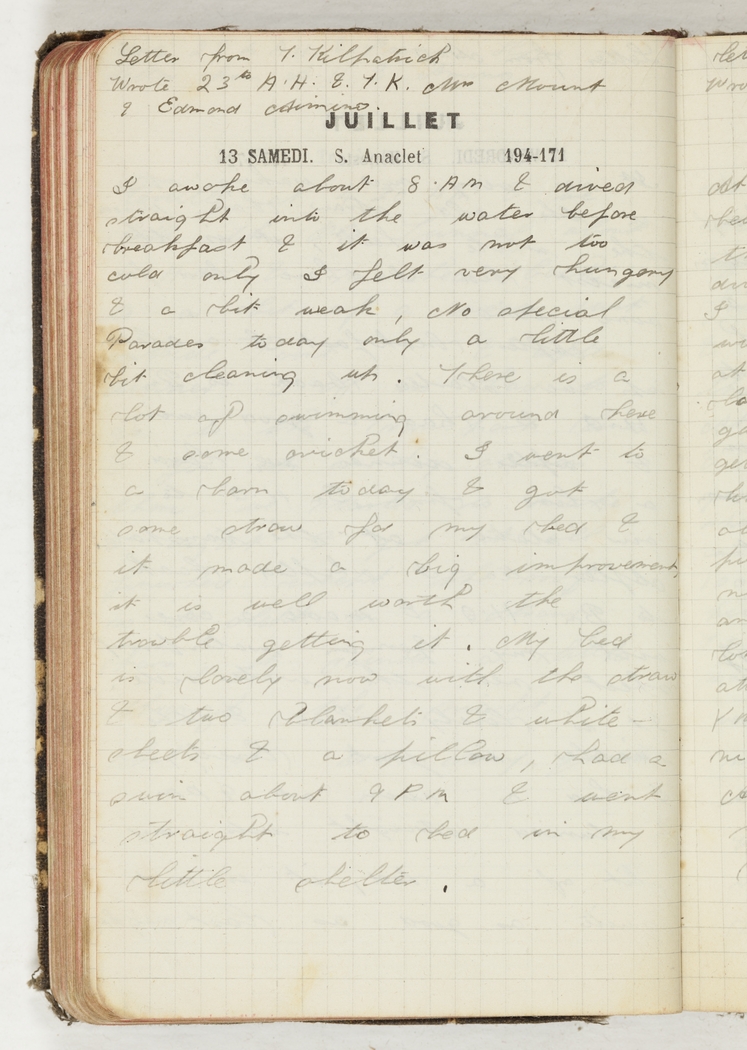 Letter from T. Kilpatrick
Wrote 23rd A.H. & T.K. Mrs Mount
& Edmond
JUILLET
13 SAMEDI. S. Anaclet 194-171
I awoke about 8.AM & dived
straight into the water before
breakfast & it was not too
cold only I felt very hungery
& a bit weak, No special
Parades today only a little
bit cleaning up. There is a
lot of swimming around here
& some cricket. I went to
a barn today & got
some straw for my bed &
it made a big improvement,
it is well worth the
trouble getting it. My bed
is lovely now with the straw
& two blankets & white-
sheets & a pillow, had a
swim about 9 PM & went
straight to bed in my
little shelter.